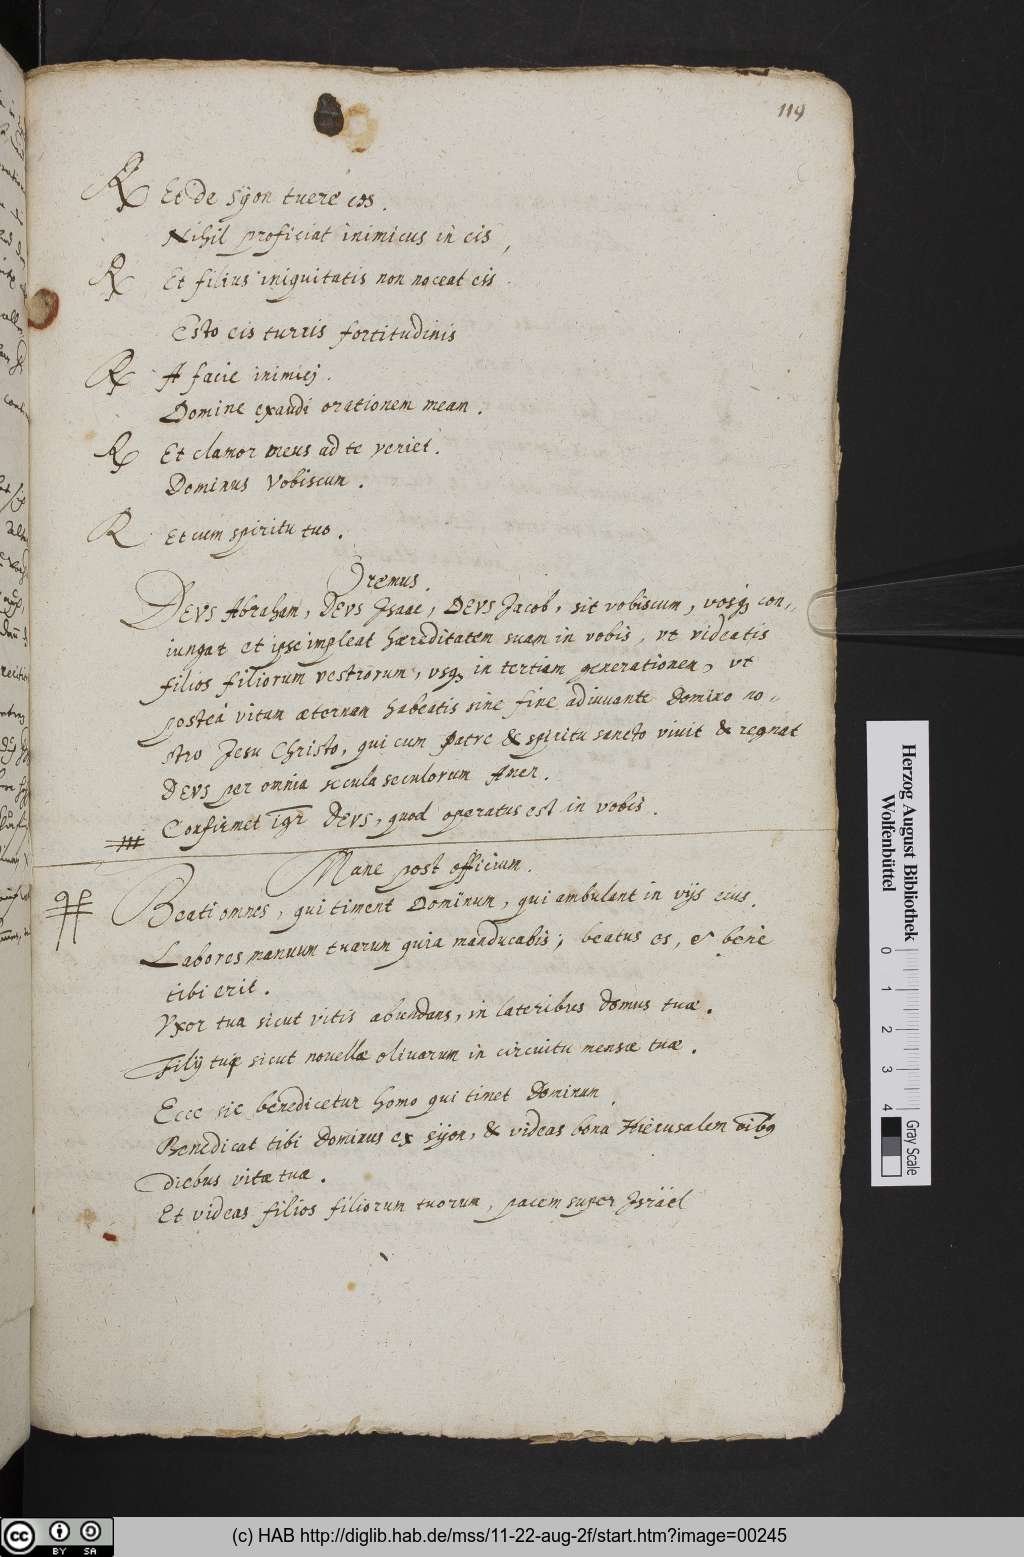 119
℟ Et de Syon tuere eos.
Nihil proficiat inimicus in eis,
℟ Et filius iniquitatis non noceat eis
Esto eis turris fortitudinis
℟ A facie inimicj.
Domine exaudi orationem mean.
℟ Et clamor meus ad te veniet.
Dominus Vobiscun.
R Et cum spiritu tuo.
Oremus.
DEVS Abraham, DEVS Isaac, DEVS Jacob, sit vobiscum, vosq, con-
iungat et ipse impleat hæreditaten suam in vobis, vt videatis
filios filiorum vestrorum, vsq, in tertiam generationen, vt
posteà vitam æternan habeatis sine fine adiuuante Domino no-
stro Jesu Christo, qui cum patre & spiritu sancto viuit & regnat
DEVS per omnia secula seculorum Amen.
Confirmet igr DEVS, quod operatus est in vobis.
Mane post officium.
Beati omnes, qui timent Dominum, qui ambulant in vijs eius.
Labores manuum tuarun quia manducabis; beatus es, et bene
tibi erit.
Vxor tua sicut vitis abundans, in lateribus domus tuæ.
Filij tui sicut nouellæ oliuarum in circuitu mensæ tuæ.
Ecce sic benedicetur homo qui timet Dominun
Benedicat tibi Dominus ex Syon, & videas bona Hierusalem oibq
diebus vitæ tuæ.
Et videas filios filiorum tuorum, pacem super Israël
Herzog August Bibliothek
Wolfenbüttel
0 1 2 3 4
Gray Scale
cc BY SA
(c) HAB http://diglib.hab.de/mss/11-22-aug-2f/start.htm?image=00245